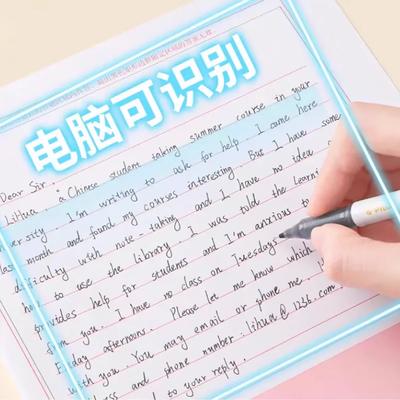 电脑可识别
Dear Sir,
Lihua, a Chinese student taking summer course in your
versity. I'm writing to ask for help. I came here
last month and found my courses interesting. But I have some
difficulty with note-taking and I have no idea
to use the library. I was told the learni
provides help for students and I'm anxious to
from you. I have no class on Tuesdays
Friday afternoons. Please let me know which
with you. You may email or phone me
and phone number: lihua@1236.com
to your reply.